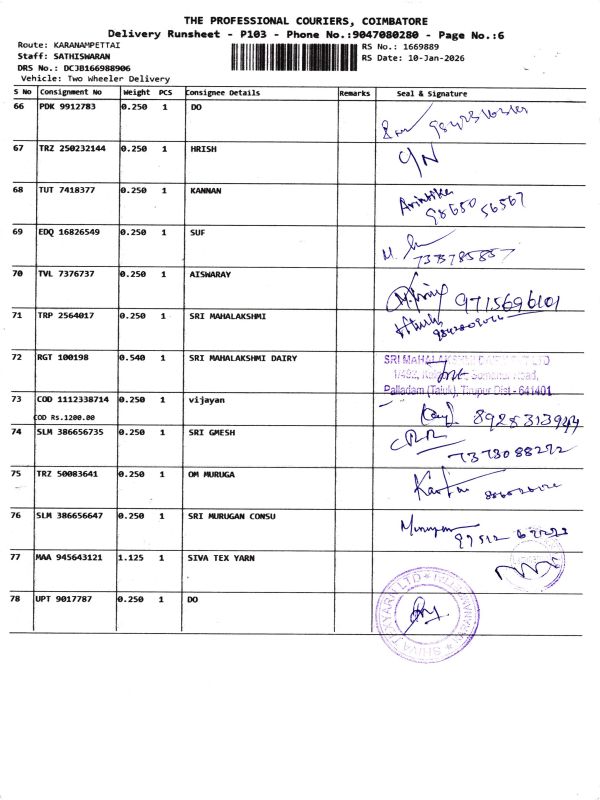 THE PROFESSIONAL COURIERS, COIMBATORE
Delivery Runsheet - P103 - Phone No.:9047080280 - Page No.:6
Route: KARANAMPETTAI
RS No.: 1669889
Staff: SATHISWARAN
RS Date: 10-Jan-2026
DRS No.: DCJB166988906
Vehicle: Two Wheeler Delivery
S No Consignment No Weight PCS Consignee Details Remarks Seal & Signature
66 PDK 9912783 0.250 1 DO
67 TRZ 250232144 0.250 1 HRISH
68 TUT 7418377 0.250 1 KANNAN
98650 56567
69 EDQ 16826549 0.250 1 SUF
70 TVL 7376737 0.250 1 AISWARAY
9715696101
71 TRP 2564017 0.250 1 SRI MAHALAKSHMI
72 RGT 100198 0.540 1 SRI MAHALAKSHMI DAIRY
SRI MAHALAKSHMI
Palladam (Taluk), Tirupur Dist - 641401
73 COD 1112338714 0.250 1 vijayan
COD Rs.1200.00
74 SLM 386656735 0.250 1 SRI GMESH
7373088272
75 TRZ 50083641 0.250 1 OM MURUGA
76 SLM 386656647 0.250 1 SRI MURUGAN CONSU
Murugan
77 MAA 945643121 1.125 1 SIVA TEX YARN
78 UPT 9017787 0.250 1 DO